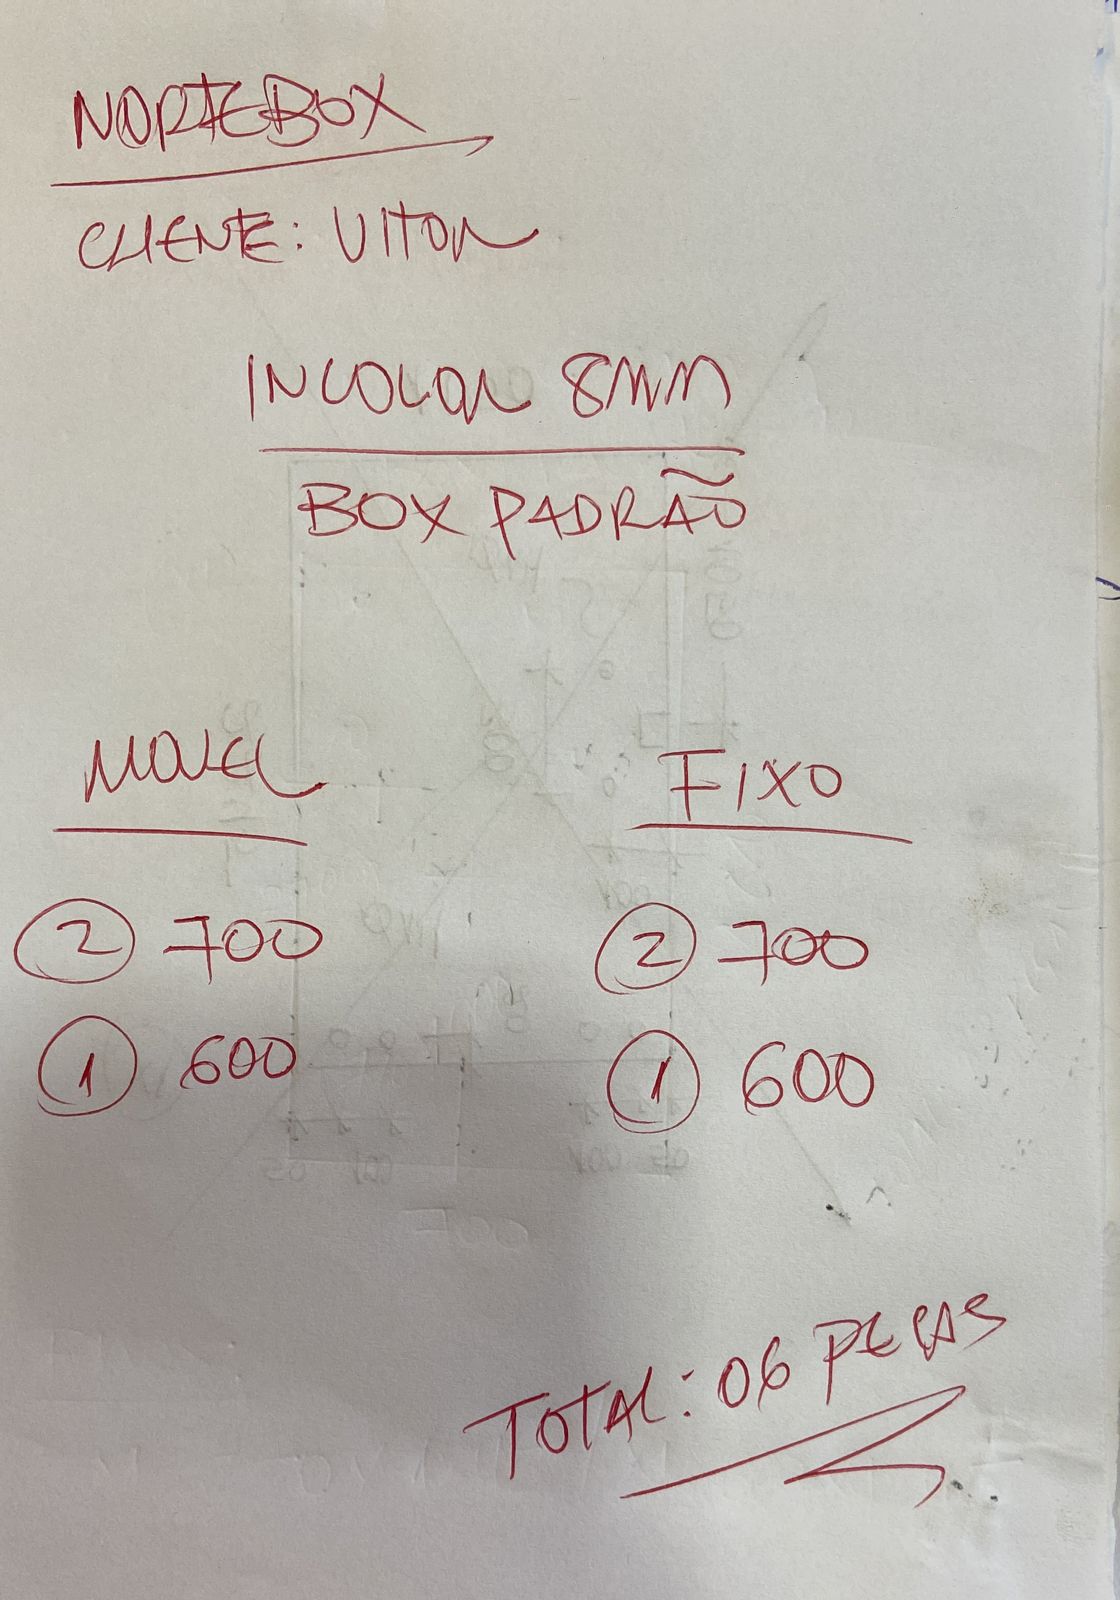 NORTEBOX
CLIENTE: VITOR
INCOLOR 8MM
BOX PADRÃO
MOVEL
FIXO
2 700
2 700
1 600
1 600
TOTAL: 06 PEÇAS